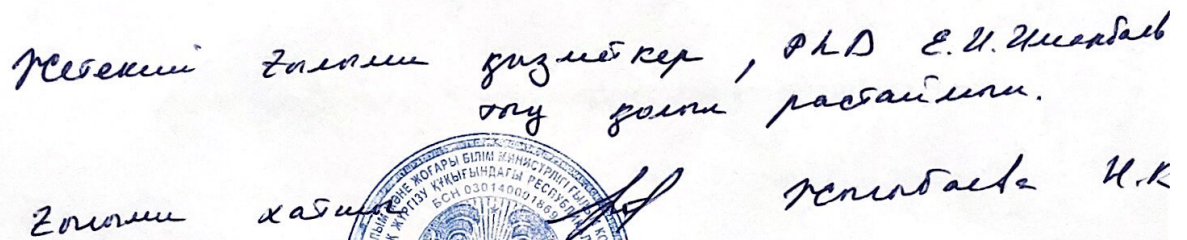 Жетекші ғылыми қызметкер, PhD Е.И.Иманбаев
тың қолын растаймын.
Ғылыми хатшы Жылыбаева Н.К
ЖОҒАРЫ БІЛІМ МИНИСТРЛІГІ ҒЫЛЫМ
ЖҮРГІЗУ ҚҰҚЫҒЫНДАҒЫ РЕСПУБЛ
БСН 0301400018